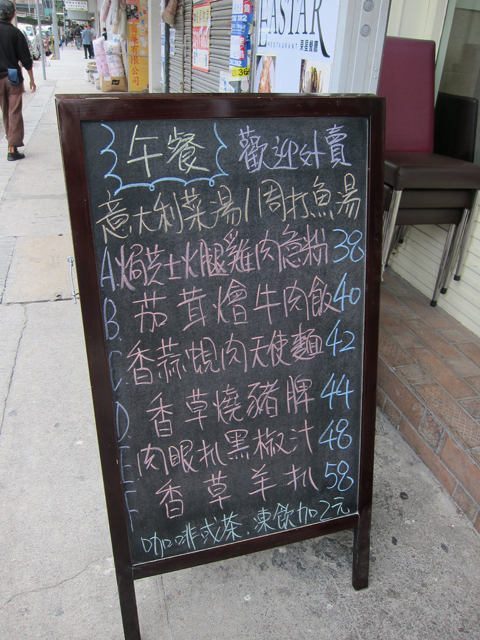 EASTAR
RESTAURANT
午餐 歡迎外賣
意大利菜湯/周打魚湯
A. 焗芝士火腿雞肉意粉 38
B. 茄茸燴牛肉飯 40
C 香蒜蜆肉天使麵 42
D 香草燒豬脾 44
E 肉眼扒黑椒汁 48
F 香草羊扒 58
咖啡或茶.凍飲加2元